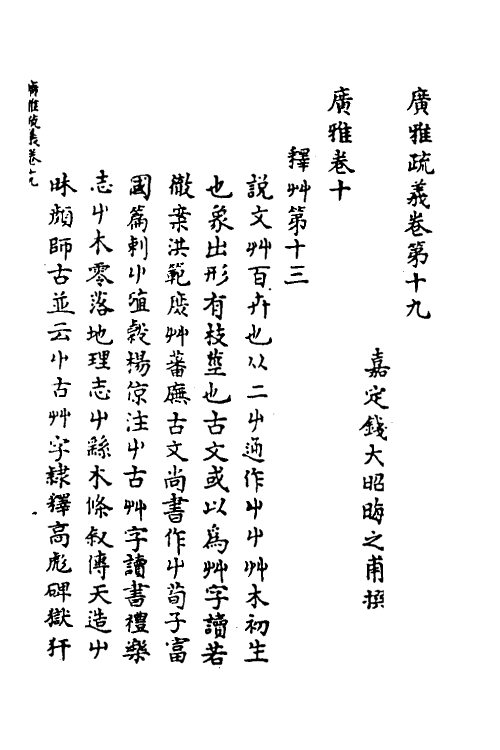 廣雅疏義卷第十九
嘉定錢大昭晦之甫撰
廣雅卷十
釋艸第十三
說文艸百卉也从二屮通作屮屮艸木初生
也象出形有枝莖也古文或以爲艸字讀若
徹案洪範庶艸蕃廡古文尚書作屮荀子富
國篇刺屮殖穀楊倞注屮古艸字讀書禮樂
志屮木零落地理志屮繇木條叙傳天造屮
昧顔師古並云屮古艸字隸釋高彪碑獄犴
廣雅疏義卷十九